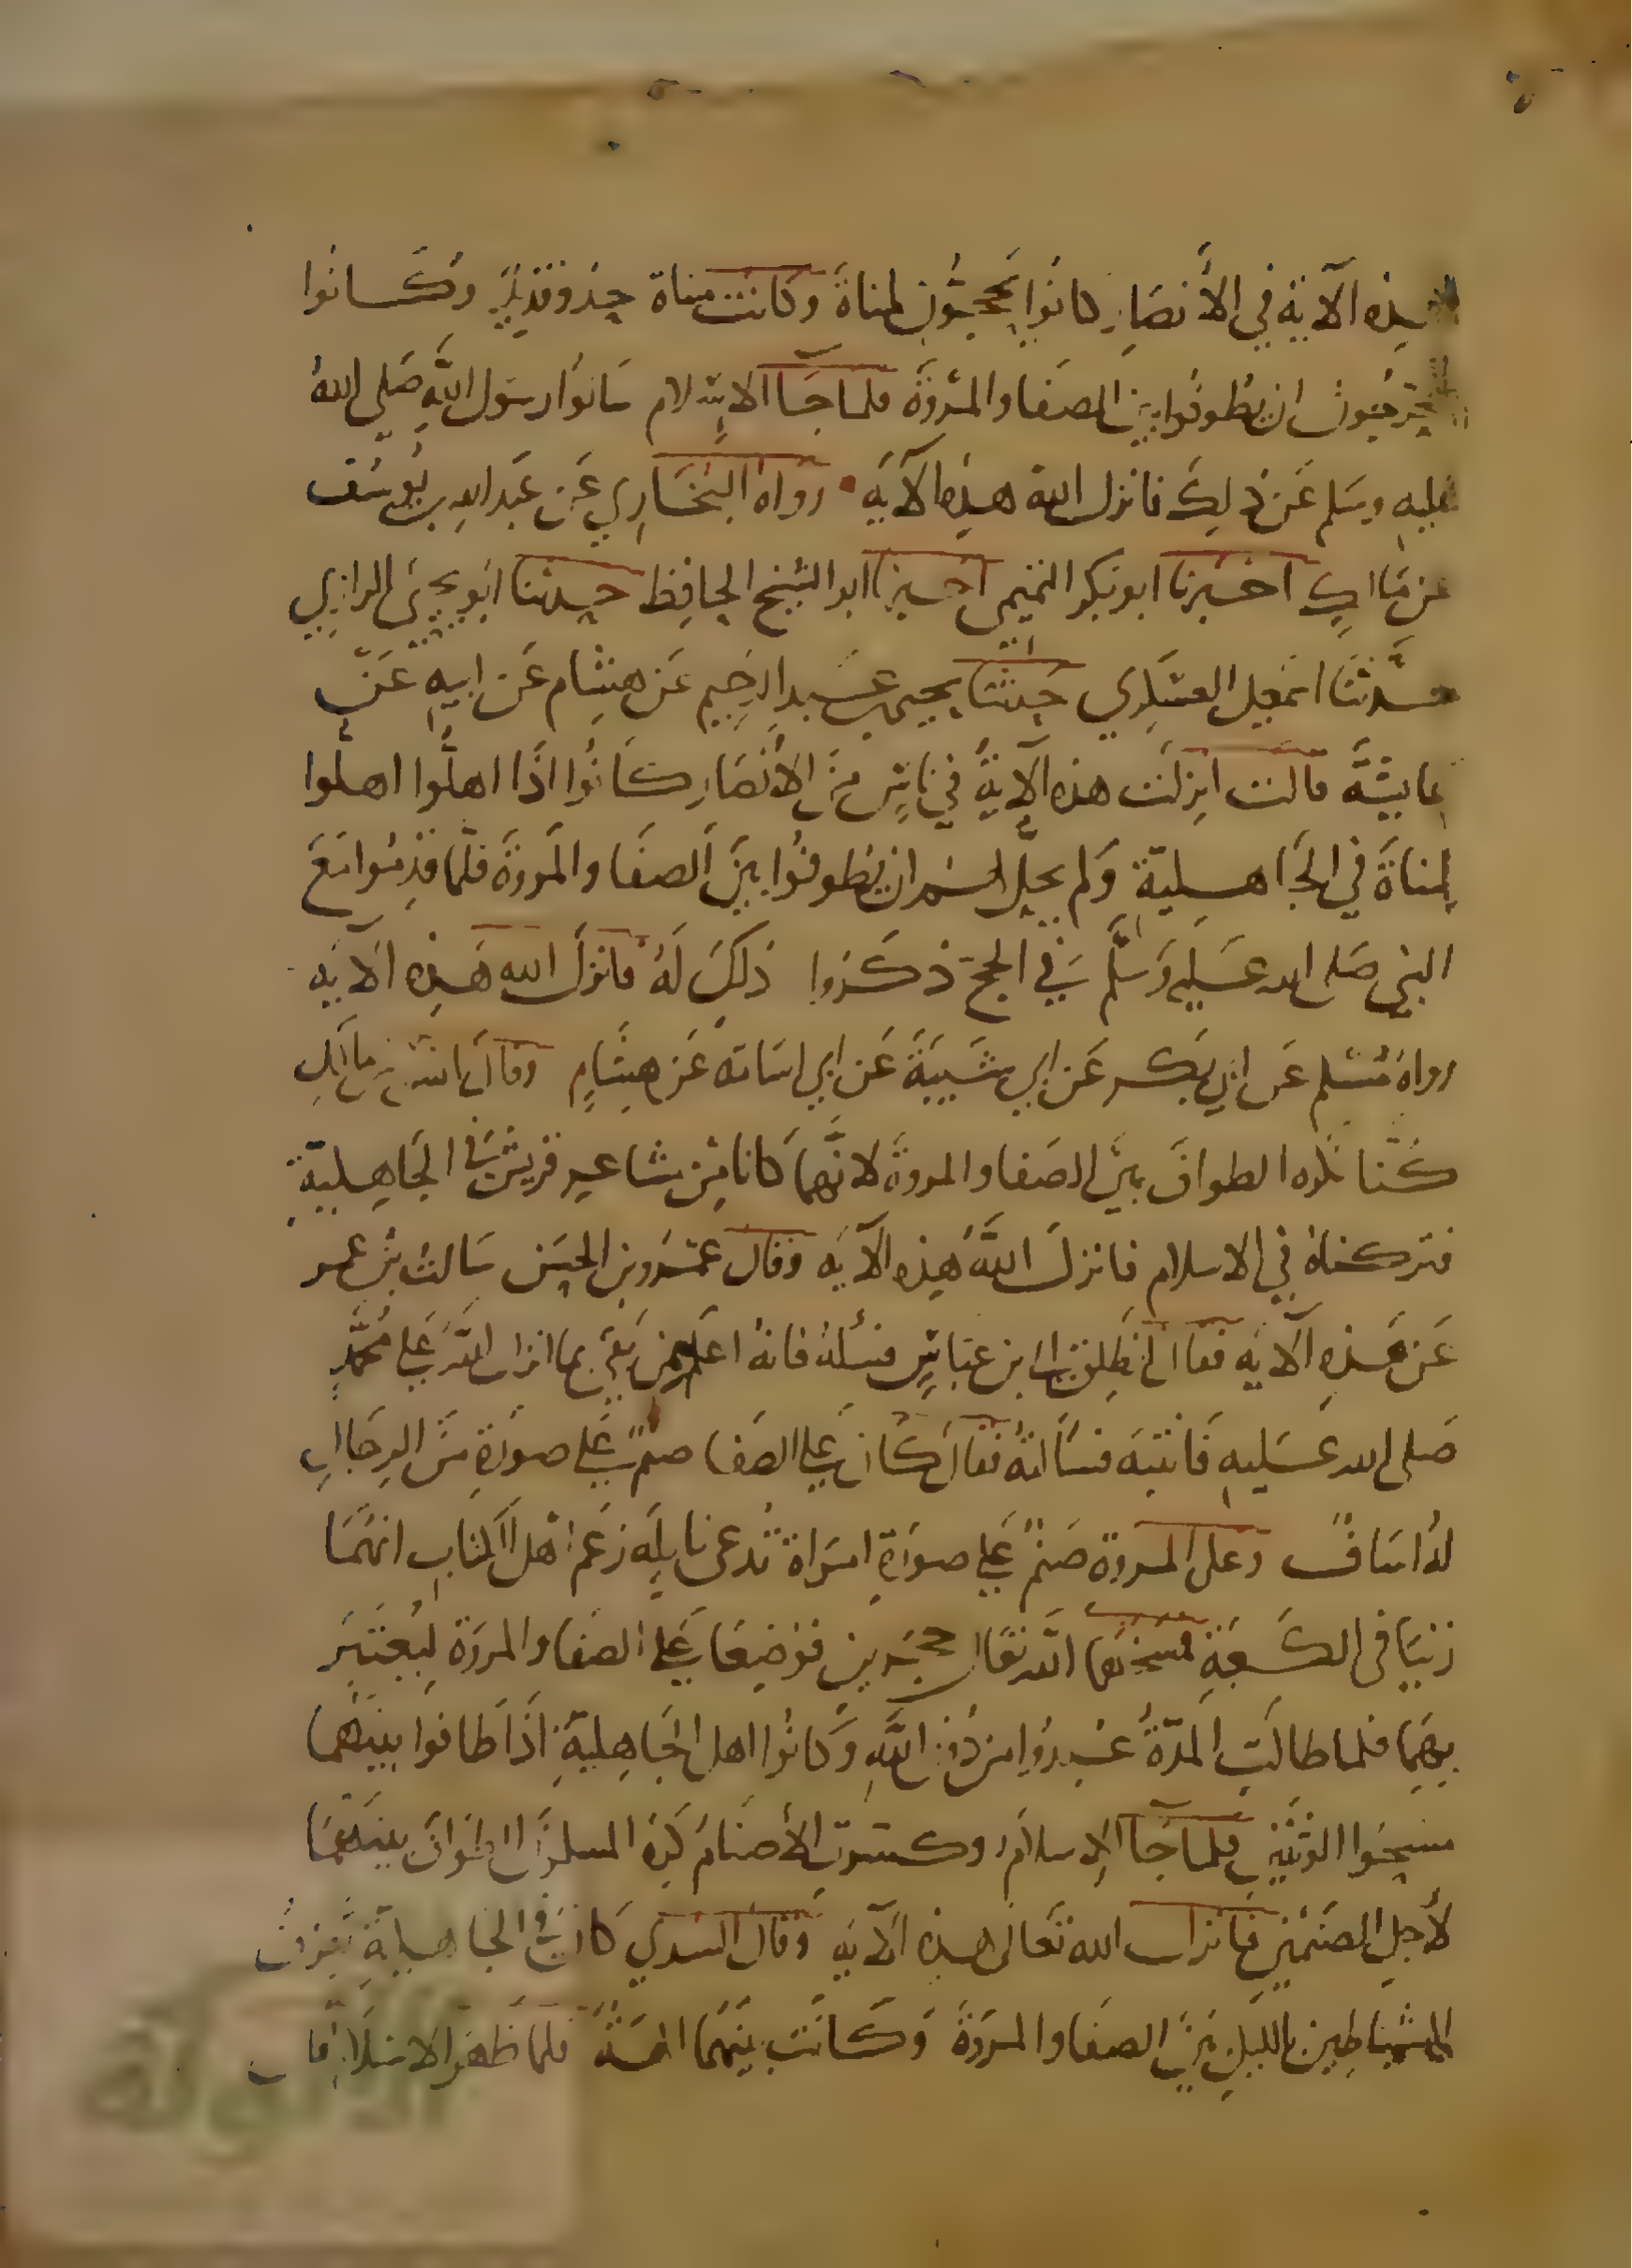 هذه الآية في الأنصار كانوا يحجون لمناة وكانت مناة حذو قديد وكانوا
يتحرجون ان يطوفوا بين الصفا والمروة فلما جا الاسلام سالوا رسول الله صلى الله
عليه وسلم عن ذلك فانزل الله هذه الآية رواه البخاري عن عبد الله بن يوسف
عن مالك اخبرنا ابو بكر التميمي اخبرنا ابو الشيخ الحافظ حدثنا ابو يحيى الرازي
حدثنا اسمعيل العسكري حدثنا يحيى بن عبد الرحيم عن هشام عن ابيه عن
عايشة قالت انزلت هذه الآية في ناس من الأنصار كانوا اذا اهلوا اهلوا
لمناة في الجاهلية ولم يحل لهم ان يطوفوا بين الصفا والمروة فلما قدموا مع
النبي صلى الله عليه وسلم في الحج ذكروا ذلك له فانزل الله هذه الآية
رواه مسلم عن ابي بكر عن ابي شيبة عن ابي اسامة عن هشام وقال انس بن مالك
كنا نكره الطواف بين الصفا والمروة لانهما كانا من مشاعير قريش في الجاهلية
فتركناه في الاسلام فانزل الله هذه الآية وقال عمرو بن الحسن سالت بن عمر
عن هذه الآية فقال انطلق الى ابن عباس فسئله فانه اعلم من بقي بما انزل الله على محمد
صلى الله عليه فاتيته فسألته فقال كان على الصفا صنم على صورة من الرجال
له اساف وعلى المروة صنم على صورة امراة تدعى نايلة زعم اهل الكتاب انهما
زنيا في الكعبة فمسخهما الله تعالى حجرين فوضعا على الصفا والمروة ليعتبر
بهما فلما طالت المدة عبدوا من دون الله وكانوا اهل الجاهلية اذا طافوا بينهما
مسحوا الوثنين فلما جا الاسلام وكسرت الأصنام كره المسلمون الطواف بينهما
لأجل الصنمين فانزل الله تعالى هذه الآية وقال السدي كان في الجاهلية تعزف
الشياطين بالليل بين الصفا والمروة وكانت بينهما الهة فلما ظهر الاسلام قال